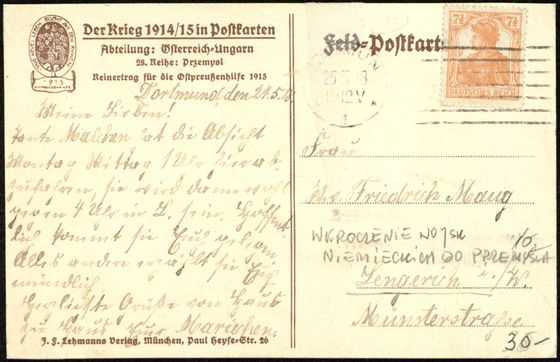 Der Krieg 1914/15 in Postkarten
Abteilung: Österreich-Ungarn
28. Reihe: Przemysl
Reinertrag für die Ostpreußenhilfe 1915
1915
Dortmund, den 24.5.18
Meine Lieben!
Tante Malchen hat die Absicht
Montag Mittag 1 Uhr hier ab-
zufahren, sie wird dann wohl
gegen 4 Uhr in L. sein. Hoffent-
lich kommt sie Euch gelegen.
Alles andere erzählt sie Euch
mündlich.
Herzlichste Grüße von Haus
zu Haus Eure Mariechen.
J. F. Lehmanns Verlag, München, Paul Heyse-Str. 26
Feld-Postkarte
7½ 7½
DEUTSCHES REICH
25.5.18
12 V
Frau
Wwe. Friedrich Maug
WKROCZENIE WOJSK
NIEMIECKICH DO PRZEMYŚLA
10
Lengerich i./W.
Münsterstraße
30-